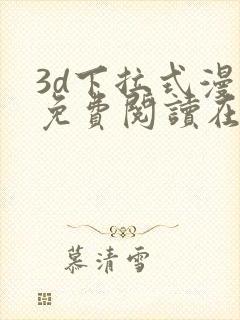 3d下拉式漫
免費閱讀在
慕清雪